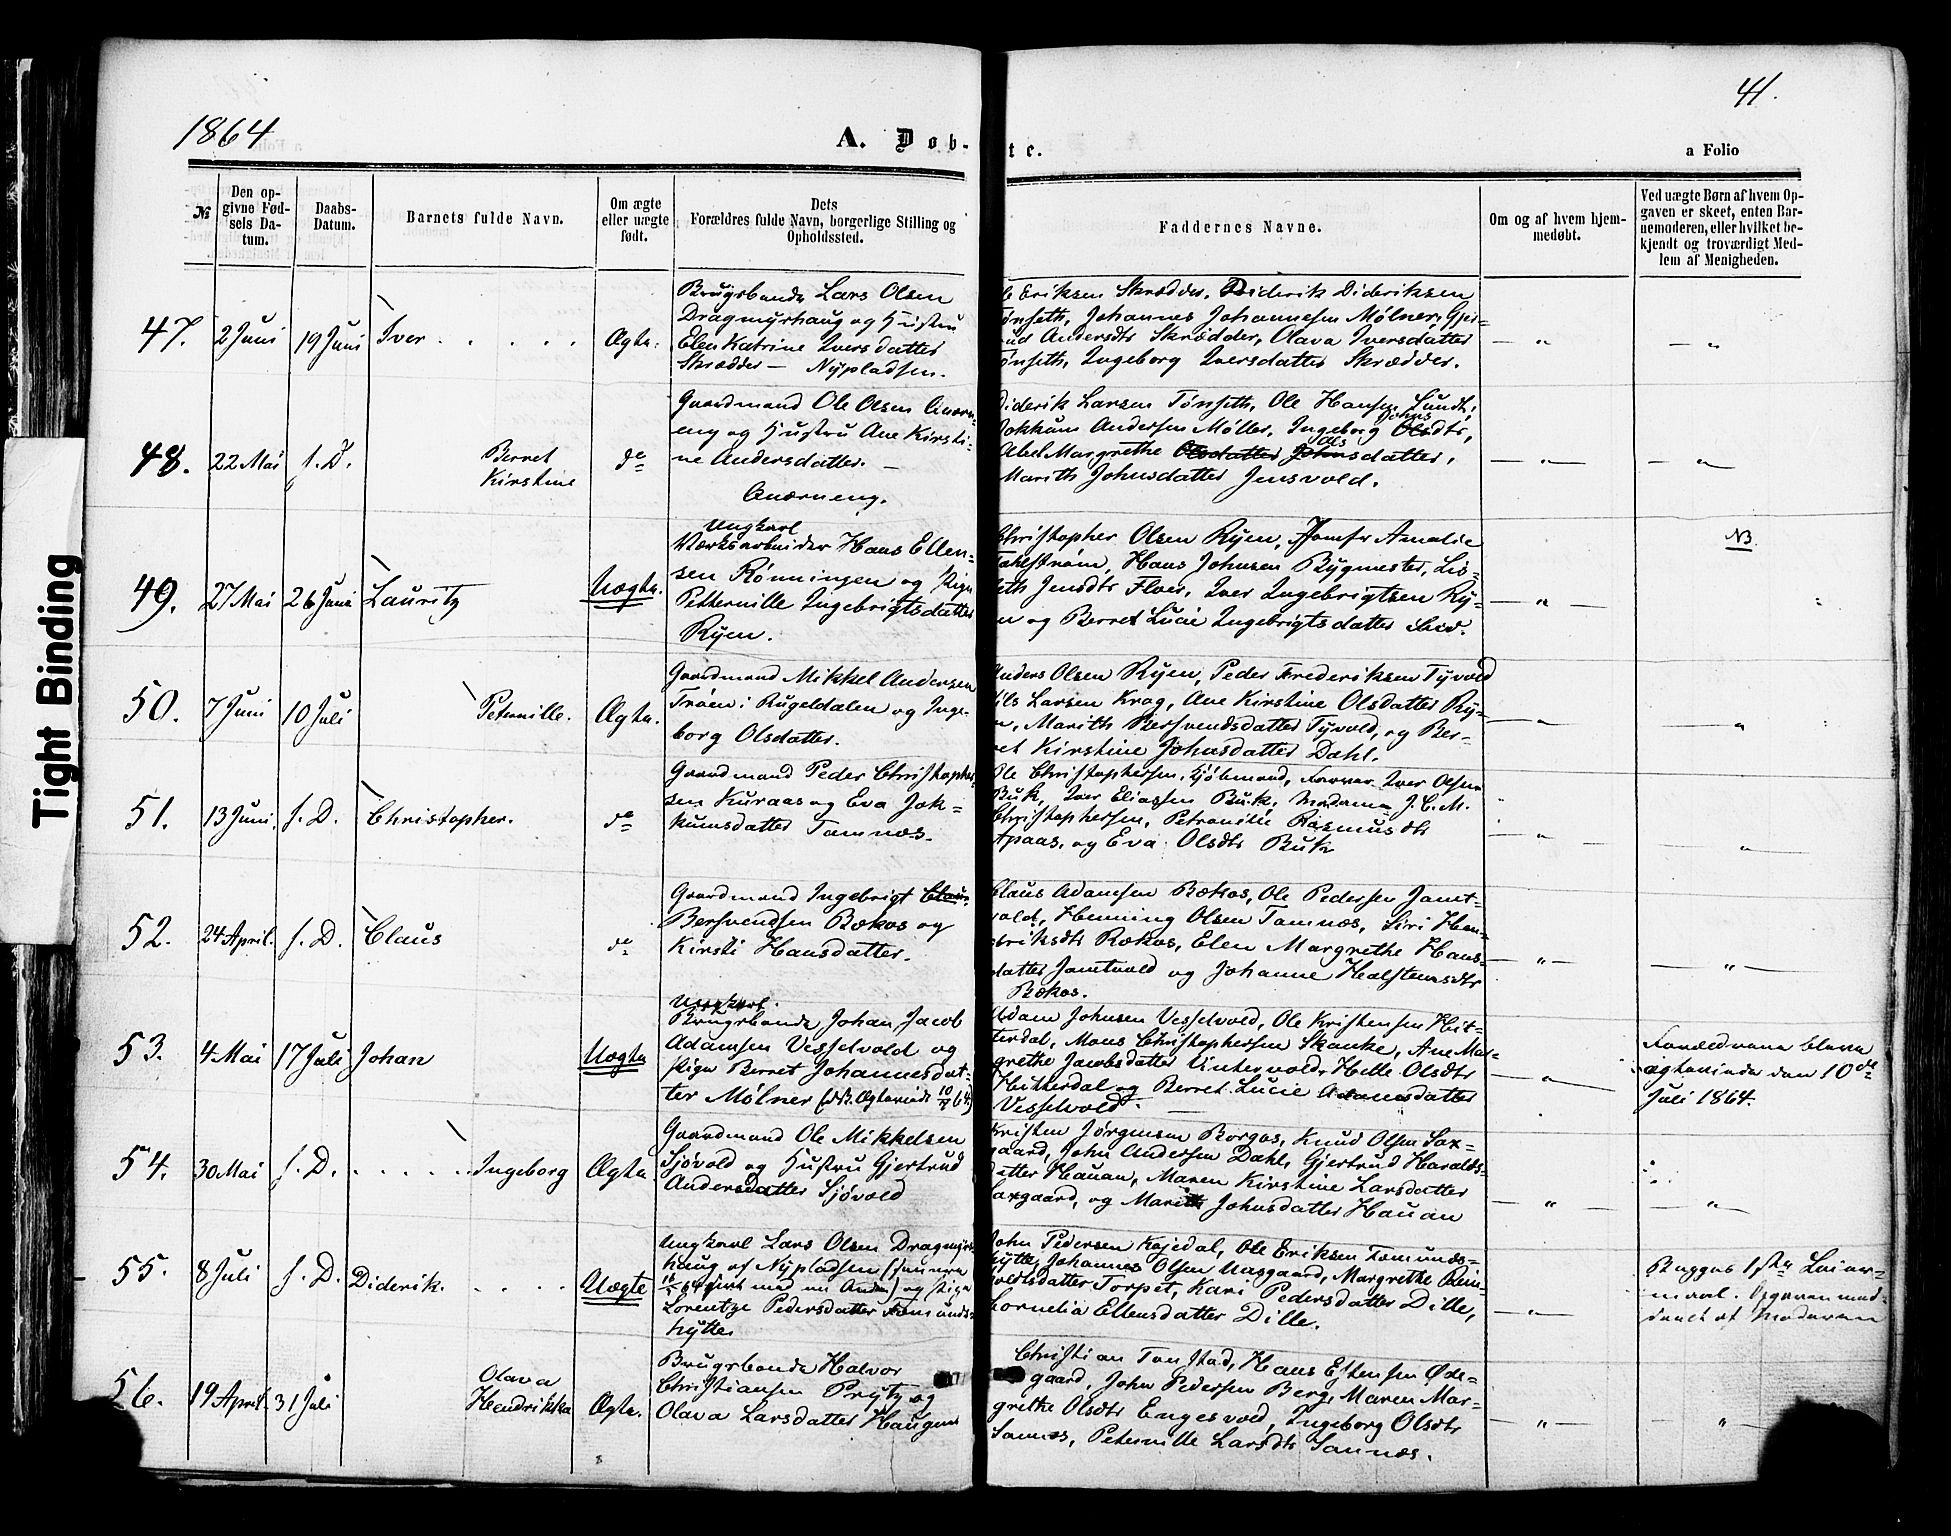 1864
A. Døb-
te.
41.
a Folio
№
Den op-
givne Fød-
sels Da-
tum.
Daabs-
Datum.
Barnets fulde Navn.
Om ægte
eller uægte
født.
Dets
Forældres fulde Navn, borgerlige Stilling og
Opholdssted.
Faddernes Navne.
Om og af hvem hjem-
medøbt.
Ved uægte Børn af hvem Op-
gaven er skeet, enten Bar-
nemoderen, eller hvilket be-
kjendt og troværdigt Med-
lem af Menigheden.
47. 2 Juni 19 Juni Iver Ægte.
Brugsbonde Lars Olsen
Dragmyrhaug og Hustru
Elen Katrine Iversdatter
Skrædder — Nypladsen.
Eriksen Skrædder, Diderik Dideriksen
Tønseth, Johannes Johannesen Mølner, Gjer-
rud Andersdtr Skrædder, Olava Iversdatter
Tønseth, Ingeborg Iversdatter Skrædder.
— " — — " —
48. 22 Mai s. D. Berret
Kirstine do
Gaardmand Ole Olsen Aaeren-
eng og Hustru Ane Kirsti-
ne Andersdatter. —
Diderik Larsen Tønseth, Ole Hansen Sundt,
Jokkum Andersen Møller, Ingeborg Johns
Olsdtr,
Abel Margrethe Olsdatter Johnsdatter,
Marith Johnsdatter Jensvold.
— " — — " —
49. 27 Mai 26 Juni Lauritz Uægte.
Ungkarl
Værksarbeider Hans Ellen-
sen Rønningen og Pige
Petternille Ingebrigtsdatter
Ryen.
Christopher Olsen Ryen, Jomfr Amalie
Fahlstrøm, Hans Johnsen Bygmester, Lis-
beth Jensdtr Floer, Iver Ingebrigtsen Ry-
en og Berret Lucie Ingebrigtsdatter
— " — NB
50. 7 Juni 10 Juli Peternille. Ægte.
Gaardmand Mikkel Andersen
Trøen i Rugeldalen og Inge-
borg Olsdatter.
Anders Olsen Ryen, Peder Frederiksen Tyvold
Nils Larsen Krog, Ane Kirstine Olsdatter Ry-
en, Marith Bersvendsdatter Tyvold, og Ber-
ret Kirstine Johnsdatter Dahl.
— " — "
51. 13 Juni, s. D. Christopher. do
Gaardmand Peder Christopher-
sen Kuraas og Eva Jok-
kumsdatter Tamnes.
Ole Christophersen, Kjøbmand, Iver Olsen
Buk, Iver Eliassen Buk, Madame J. C. M.
Christophersen, Petronille Rasmusdtr
Aspaas, og Eva Olsdtr Buk
— " — — " —
52. 24 April. s. D. Claus do
Gaardmand Ingebrigt Claus.
Bersvendsen Bækos og
Kirsti Hansdatter.
Claus Adamsen Bækos, Ole Pedersen Jamt-
vold, Henning Olsen Tamnes, Siri Hen-
driksdtr Bækos, Elen Margrethe Hans-
datter Jamtvold og Johanne Halstensdtr
Bækos.
— " — — " —
53. 4 Mai 17 Juli Johan Uægte
Ungkarl.
Brugsbonde Johan Jacob
Adamsen Vesselvold og
Pige Berret Johannesdat-
ter Mølner (NB. Ægteviede 10/7 64)
Adam Johnsen Vesselvold, Ole Kristensen Hit-
terdal, Mons Christophersen Skanke, Ane Mar-
grethe Jacobsdatter Vintervold, Helle Olsdtr
Hitterdal og Berret Lucie Adamsdatter
Vesselvold. —
— " —
Forældrene bleve
ægteviede den 10de
Juli 1864.
54. 30 Mai s. D. Ingeborg Ægte.
Gaardmand Ole Mikkelsen
Sjøvold og Hustru Gjertrud
Andersdatter Sjøvold
Kristen Jørgensen Borgos, Knud Olsen Sax-
gaard, John Andersen Dahl, Gjertrud Haralds-
datter Hauan, Maren Kirstine Larsdatter
Saxgaard, og Marith Johnsdatter Hauan
— " — — " —
55. 8 Juli s. D. Diderik. Uægte
Ungkarl Lars Olsen Dragmyr-
haug af Nypladsen (senere
gift med en Anden) og Pige
Lorentze Pedersdatter Femunds-
hytte
John Pedersen Kojedal, Ole Eriksen Femunds-
hytte, Johannes Olsen Aasgaard, Margrethe Rein-
holdsdatter Torpet, Kari Pedersdatter Dille,
Cornelia Ellensdatter Dille.
— " —
Begges 1ste Leier-
maal. Opgaven med-
deelt af Moderen
56. 19 April 31 Juli Olava
Hendrikka Ægte.
Brugsbonde Halvor
Christiansen Prytz og
Olava Larsdatter Haugen
Christian Tonstad, Hans Estensen Øde-
gaard, John Pedersen Berg, Maren Mar-
grethe Olsdtr Engesvold, Ingeborg Olsdtr
Samnes, Peternille Larsdtr Samnes.
— " — "
Tight Binding